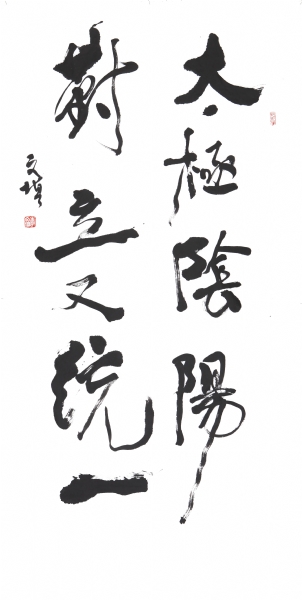 太極陰陽
對立又統一